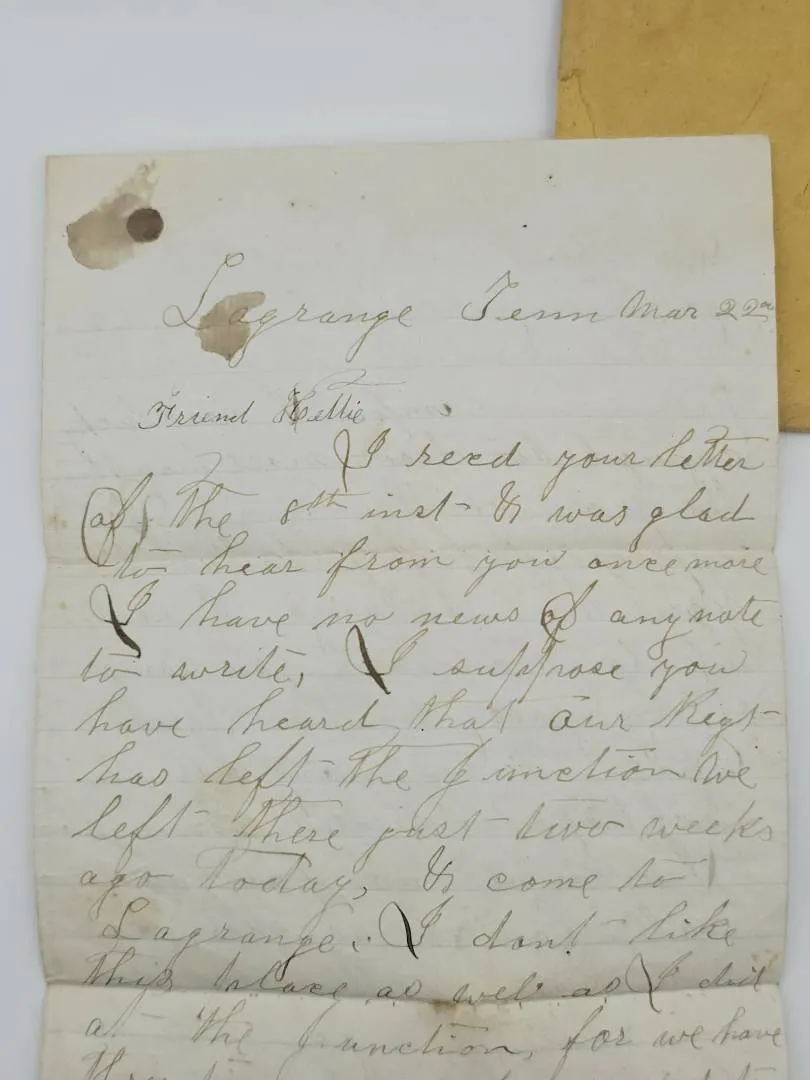 Lagrange Tenn Mar 22nd
Friend Hettie
I recd your letter
of the 8th inst & was glad
to hear from you once more
I have no news of any note
to write, I suppose you
have heard that our Regt
has left the Junction We
left there just two weeks
ago today, & come to
Lagrange. I dont like
this place as well as I did
at the Junction, for we have